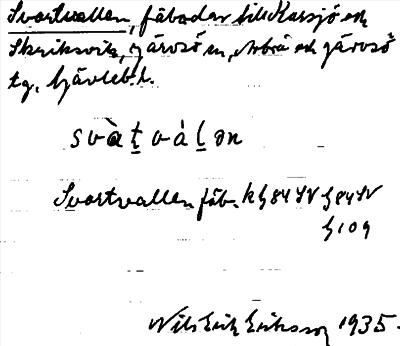 Svartvallen, fäbodar till Karsjö och
Skriksvik, Järvsö sn, Arbrå och Järvsö
tg, Gävleb. l.
svàt̠vàl̠ən
Svartvallen fäb. k G84SV G84SV
G109
Nils Erik Eriksson 1935.